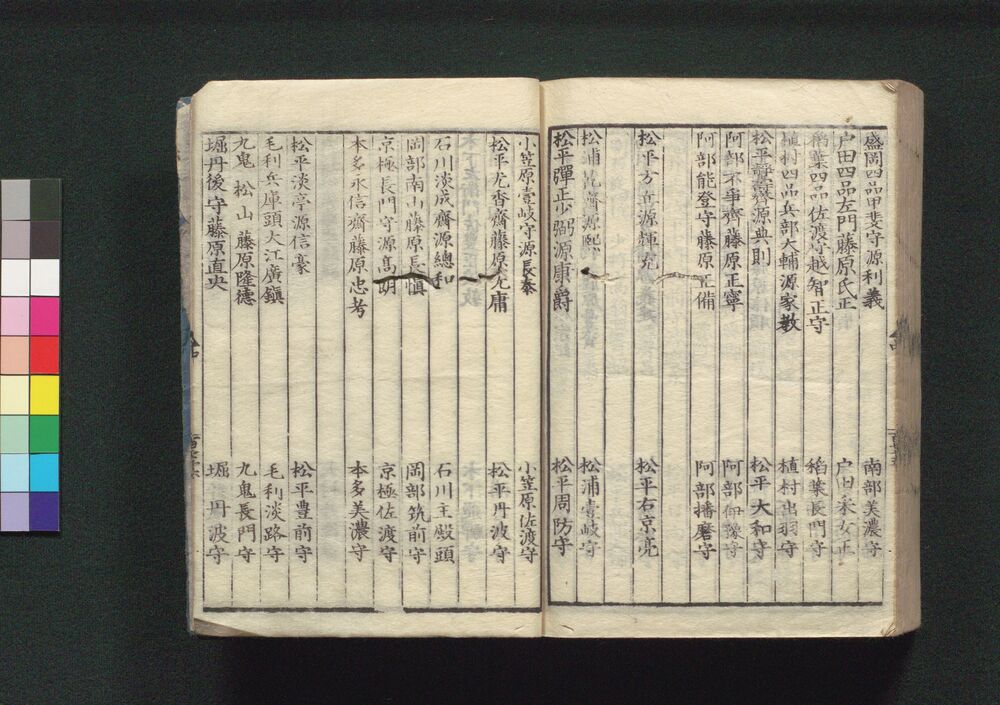 盛岡四品甲斐守源利義 南部美濃守
戸田四品左門藤原氏正 戸田采女正
稻葉四品佐渡守越智正守 稻葉長門守
植村四品兵部大輔源家教 植村出羽守
松平靜壽齋源典則 松平大和守
阿部不爭齊藤原正寧 阿部伊豫守
阿部能登守藤原正備 阿部播磨守
松平方丘源輝充 松平右京亮
松浦乾齋源熙 松浦壹岐守
松平彈正少弼源康爵 松平周防守
小笠原壹岐守源長泰 小笠原佐渡守
松平尤香齋藤原光庸 松平丹波守
石川淡成齋源總和 石川主殿頭
岡部南山藤原長愼 岡部筑前守
京極長門守源高明 京極佐渡守
本多永信齋藤原忠考 本多美濃守
松平淡亭源信豪 松平豊前守
毛利兵庫頭大江廣鎭 毛利淡路守
九鬼松山藤原隆德 九鬼長門守
堀丹後守藤原直央 堀丹波守